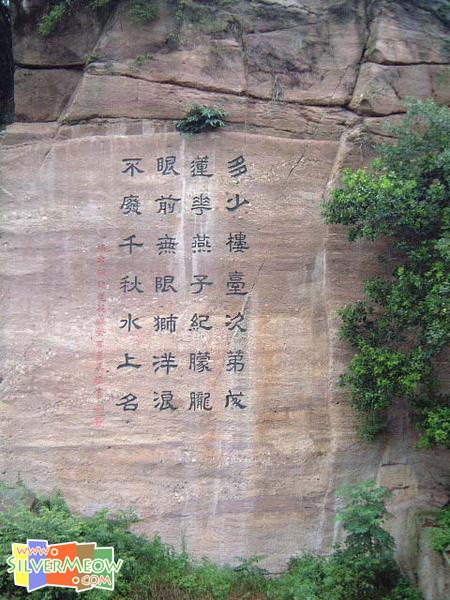 多少樓臺次第成
蓮華燕子紀朦朧
眼前無眼獅洋浪
不廢千秋水上名
www.
SILVERMEOW
.com